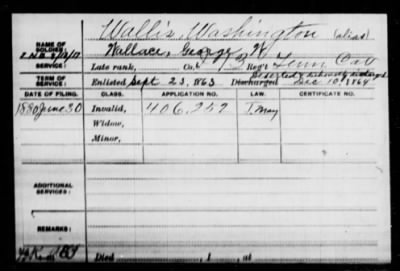 Wallis, Washington (alias)
NAME OF SOLDIER: Wallace, George W.
SERVICE: Late rank, Co. L 3 Reg't Tenn Cav
TERM OF SERVICE: Enlisted Sept 23, 1863 Discharged Dec 10, 1864
DATE OF FILING. CLASS. APPLICATION NO. LAW. CERTIFICATE NO.
1880 June 30 Invalid, 406,257 T. May
Widow,
Minor,
ADDITIONAL SERVICES:
REMARKS:
Died , 1 , at